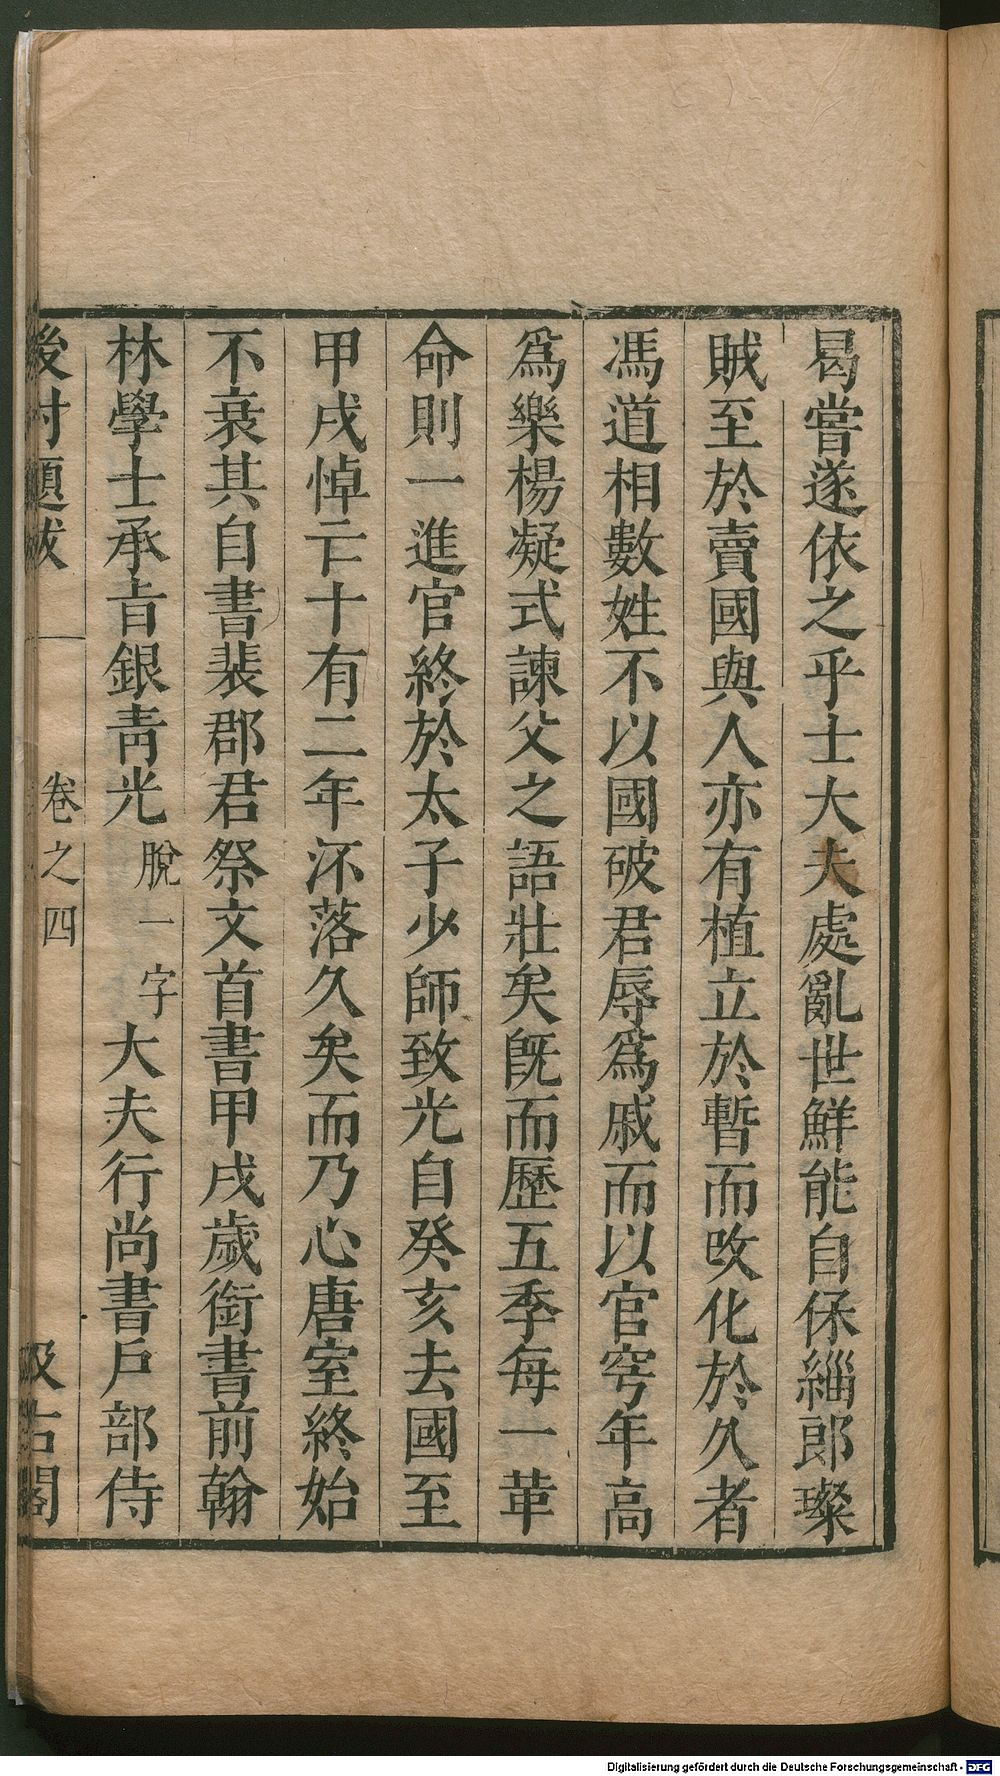 曷嘗遂依之乎士大夫處亂世鮮能自保緇郎璨
賊至於賣國與人亦有植立於暫而改化於久者
馮道相數姓不以國破君辱爲戚而以官穹年高
爲樂楊凝式諫父之語壯矣旣而歷五季每一革
命則一進官終於太子少師致光自癸亥去國至
甲戌悼亡十有二年流落久矣而乃心唐室終始
不衰其自書裴郡君祭文首書甲戌歲銜書前翰
林學士承旨銀青光脫一字大夫行尚書戶部侍
後村題跋 卷之四 汲古閣
Digitalisierung gefördert durch die Deutsche Forschungsgemeinschaft - DFG